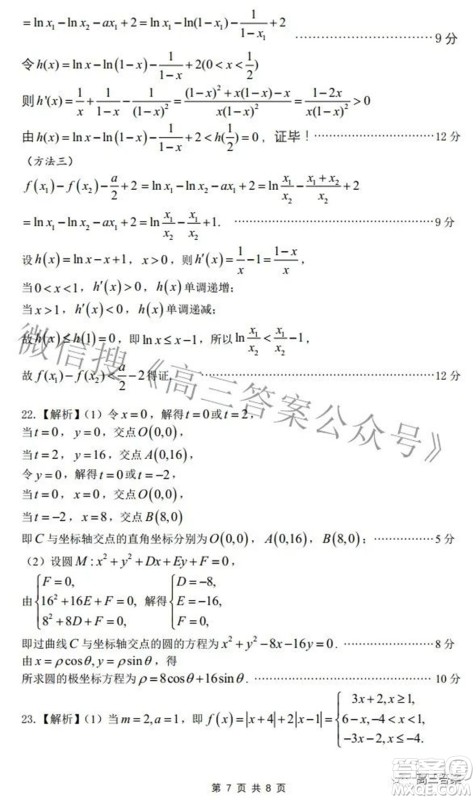 =ln x₁−ln x₂−ax₁+2=ln x₁−ln(1−x₁)−1/(1−x₁)+2 ……9 分
令h(x)=ln x−ln(1−x)−1/(1−x)+2(0<x<1/2)
则h'(x)=1/x+1/(1−x)−1/(1−x)²=((1−x)²+x(1−x)−x)/(x(1−x)²)=(1−2x)/(x(1−x)²)>0
由h(x)=ln x−ln(1−x)−1/(1−x)+2<h(1/2)=0，证毕！……12 分
（方法三）
f(x₁)−f(x₂)−a/2+2=ln x₁−ln x₂−ax₁+2=ln x₁/x₂−(x₁+x₂)/x₂+2
=ln x₁−ln x₂−ax₁+2=ln x₁/x₂−x₁/x₂+1. ……9 分
设h(x)=ln x−x+1，x>0，则h'(x)=1/x−1=(1−x)/x，
当0<x<1，h'(x)>0，h(x)单调递增；
当x>1，h'(x)<0，h(x)单调递减；
故h(x)≤h(1)=0，即ln x≤x−1，所以ln x₁/x₂<x₁/x₂−1，
故f(x₁)−f(x₂)<a/2−2得证. ……12 分
22.【解析】（1）令x=0，解得t=0或t=2，
当t=0，y=0，交点O(0,0)，
当t=2，y=16，交点A(0,16)，
令y=0，解得t=0或t=−2，
当t=0，x=0，交点O(0,0)，
当t=−2，x=8，交点B(8,0)
即C与坐标轴交点的直角坐标分别为O(0,0)，A(0,16)，B(8,0)；……5 分
（2）设圆M:x²+y²+Dx+Ey+F=0，
由{F=0, 16²+16E+F=0, 8²+8D+F=0, 解得{D=−8, E=−16, F=0,
即过曲线C与坐标轴交点的圆的方程为x²+y²−8x−16y=0. ……8 分
由x=ρcosθ,y=ρsinθ，得
所求圆的极坐标方程为ρ=8cosθ+16sinθ. ……10 分
23.【解析】（1）当m=2,a=1，即f(x)=|x+4|+2|x−1|={3x+2,x≥1, 6−x,−4<x<1, −3x−2,x≤−4,
第 7 页 共 8 页
微信搜《高三答案公众号》
高三答案